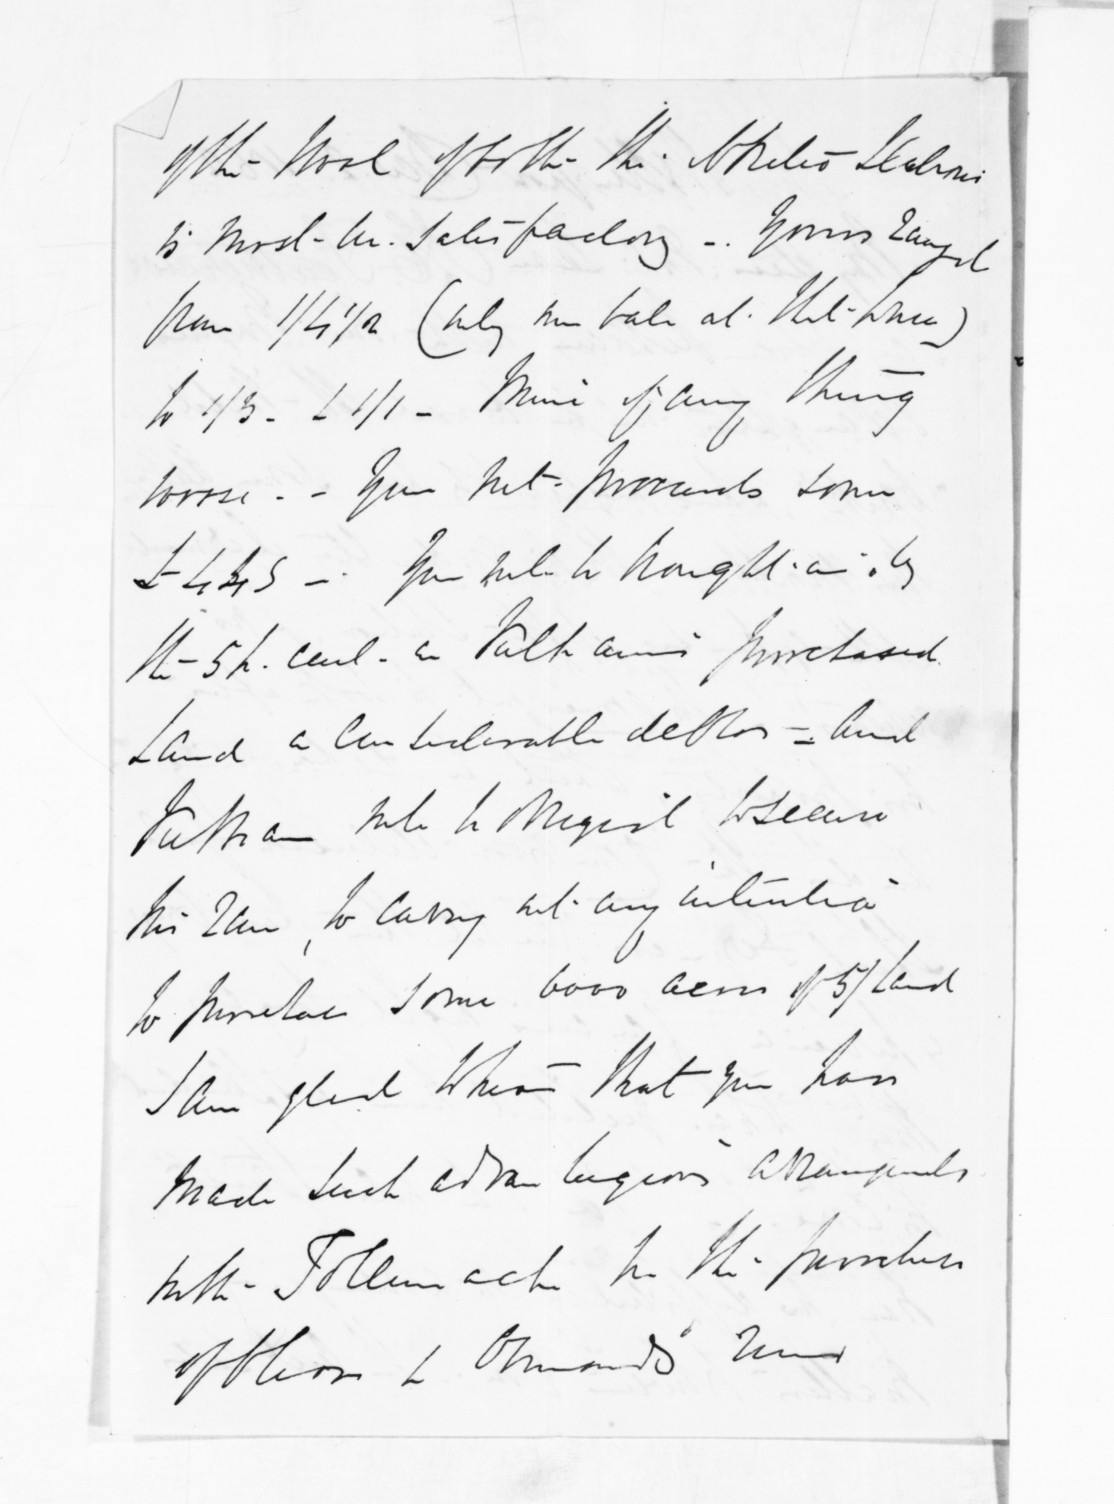 of the Wool of both the Stations
is most un-satisfactory -. Yours ranged
from 1/4½ (only one bale at that price)
to 1/3 - & 1/1 - Mine if any thing
worse - - Your net - proceeds some
£445 -. You will be brought in by
the 5 p. cent - on purchased
Land a considerable debtor - and
will be obliged to secure
his run, to carry out any intention
to purchase some 6000 acres of 5/ Land
I am glad to hear that you have
made such advantageous arrangements
with Tollemache for the purchase
of & Ormond's runs